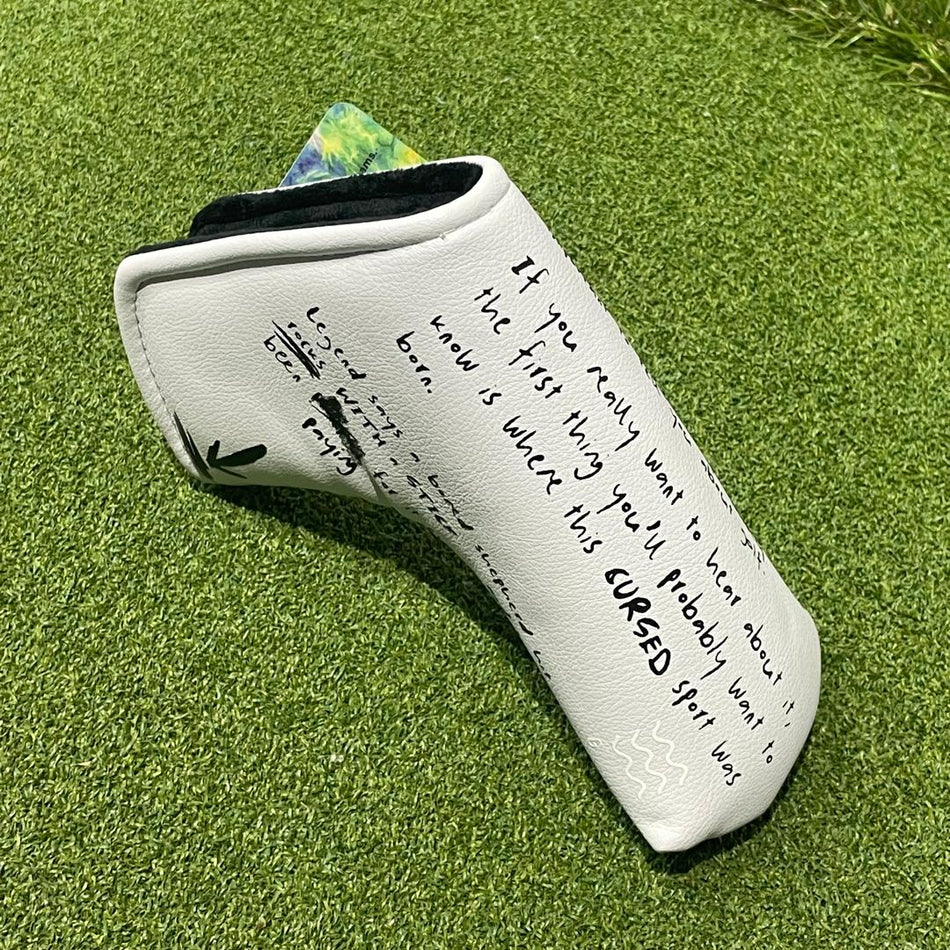 If you really want to hear about it,
the first thing you'll probably want to
know is where this CURSED sport was
born.
Legend says a bored
rocks WITH a STICK
been paying
ams.